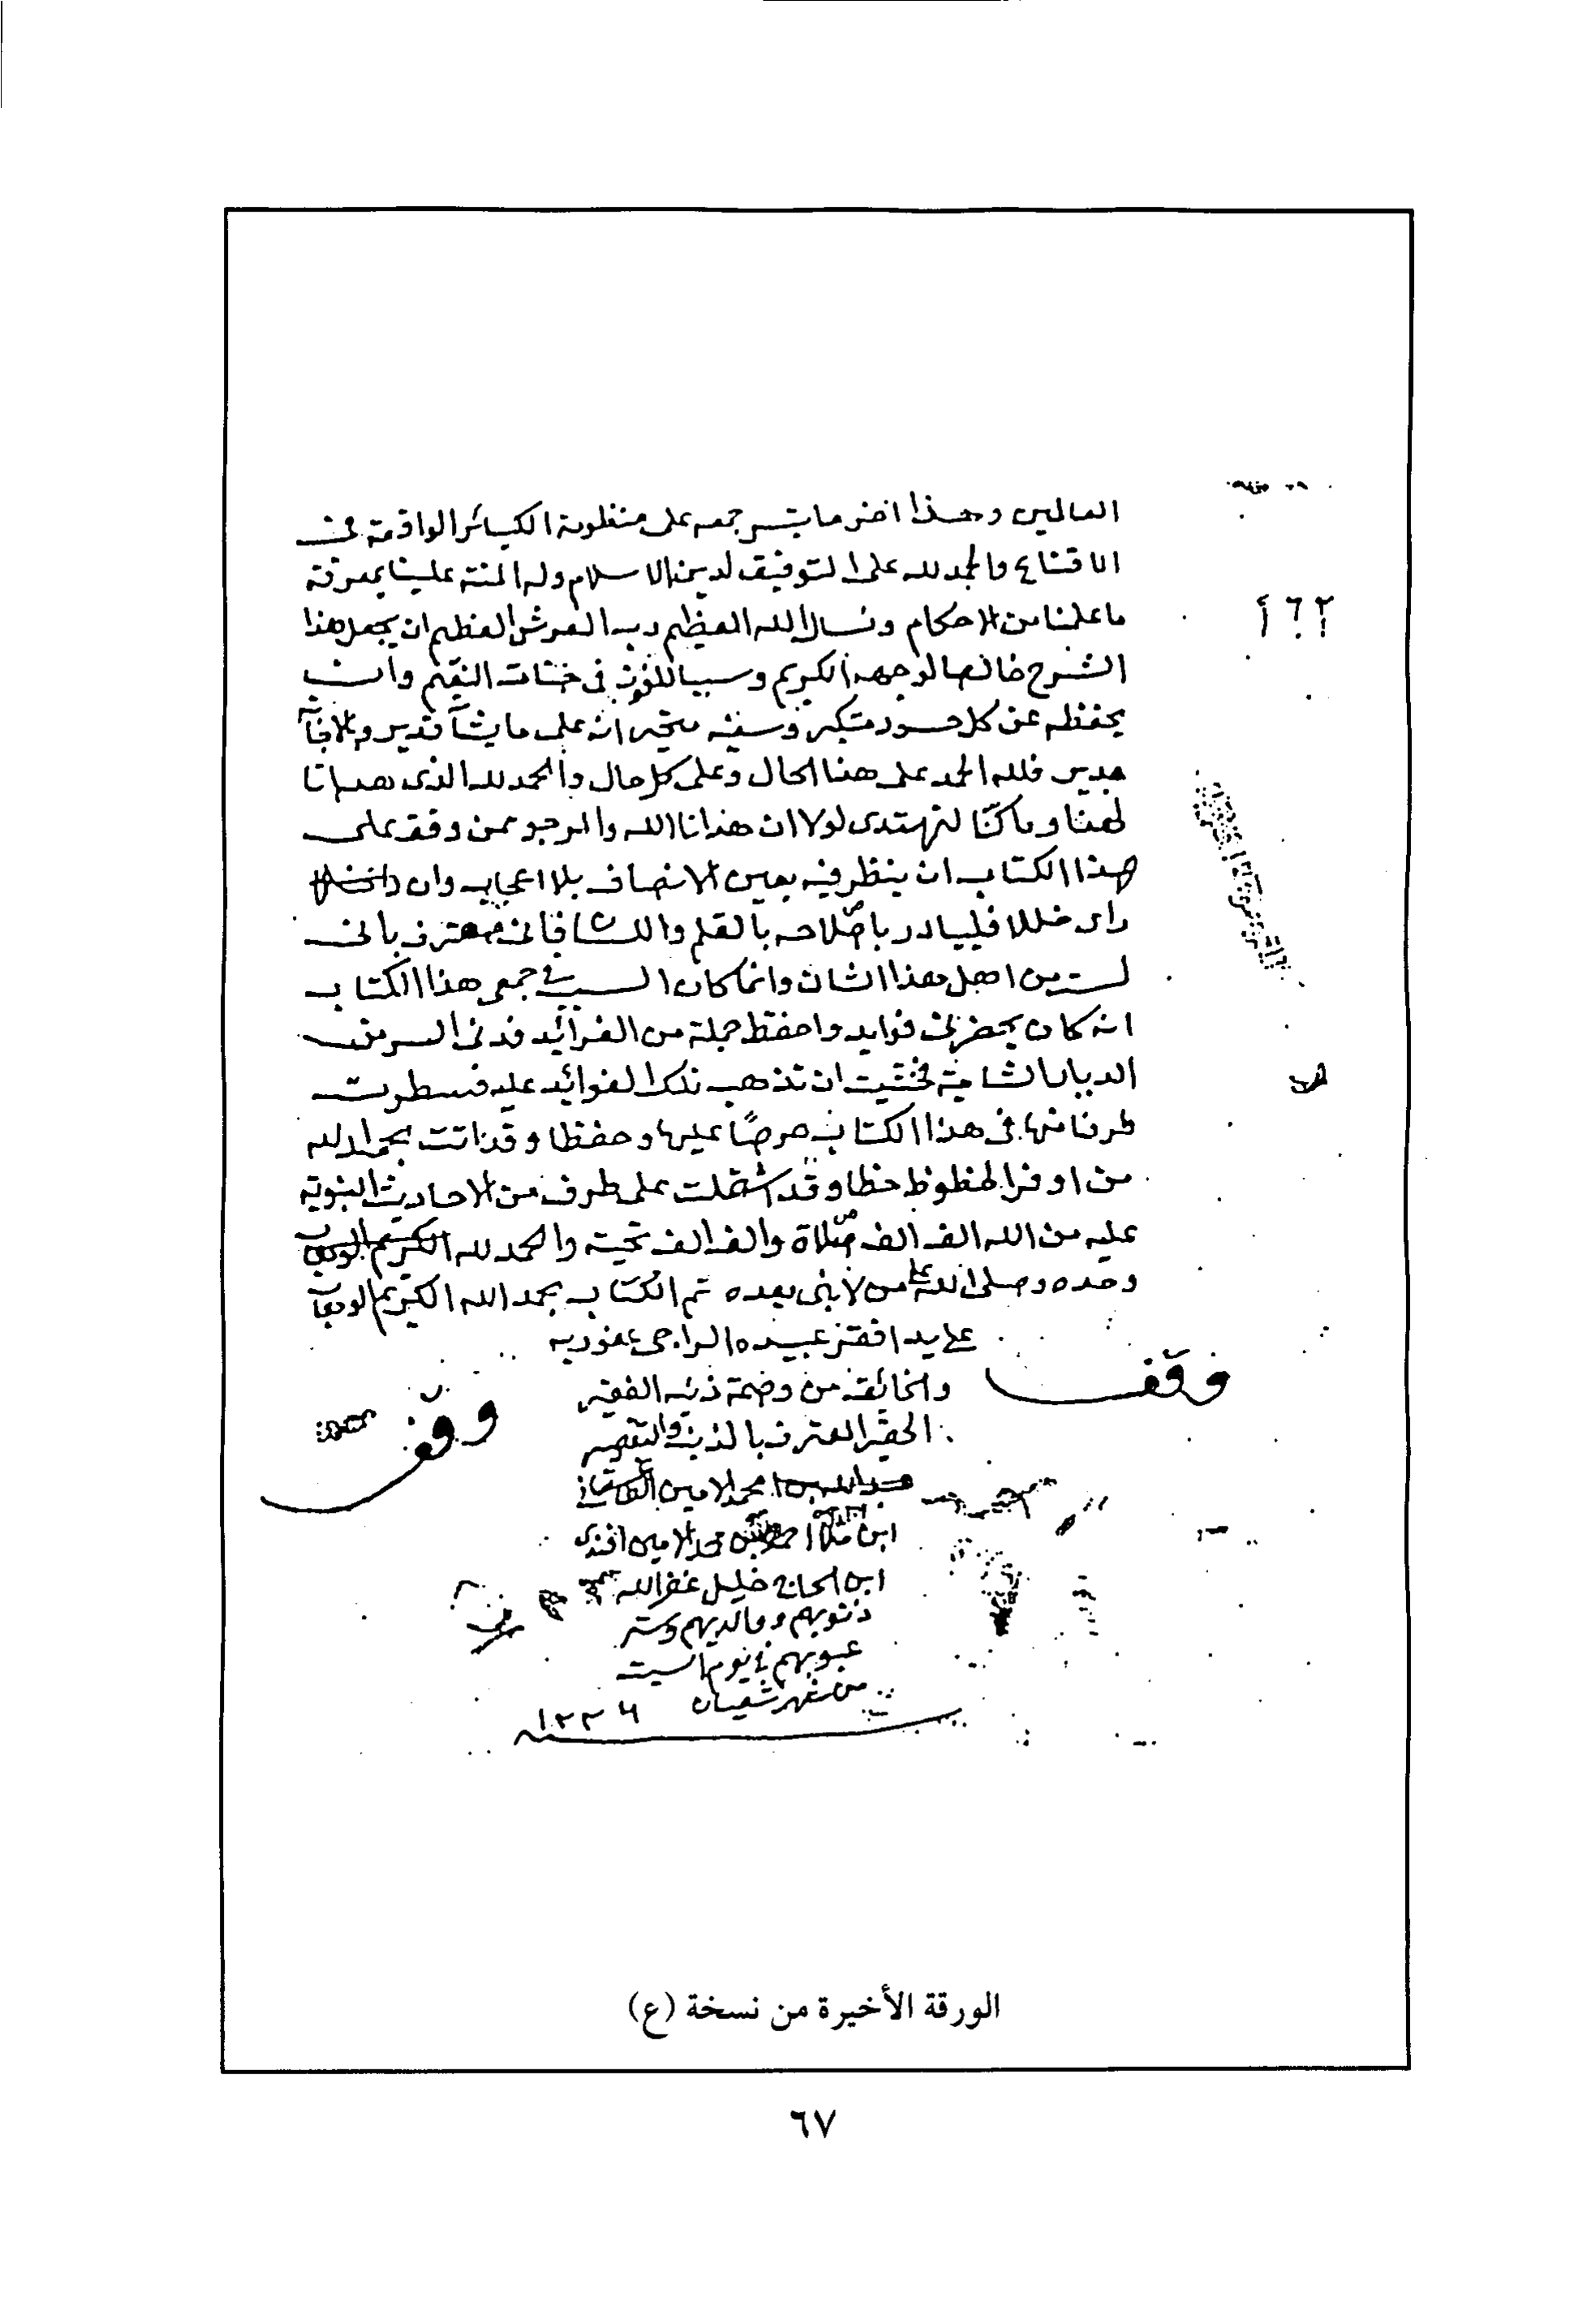 العالمين وهذا اخر ما يتسر جمعه على منظومة الكبائر الواقعة في
الاقناع فالحمد لله على التوفيق لدين الاسلام وله المنة علينا بمعرفة
ما علمنا من الاحكام ونسال الله العظيم رب العرش العظيم ان يجعل هذا
٢٦٢ أ
الشرح خالصا لوجهه الكريم وسببا للفوز في جنات النعيم وان
يحفظه عن كل حسود متكبر وسفيه انه على ما يشآ قدير وبالاجابة
جدير فلله الحمد على هذا الحال وعلى كل حال والحمد لله الذى هدانا
لهذا وما كنّا لنهتدى لولا ان هدانا الله والمرجو ممن وقف على
هذا الكتاب ان ينظر فيه بعين الانصاف بلا اعجاب وان
راى خللا فليبادر باصلاحه بالقلم واللسان فانى معترف بانى
لست من اهل هذا الشان وانما كان السبب في جمعى هذا الكتاب
انه كان يحضرنى فوايد واحفظ جملة من الفرائد
فخشيت ان تذهب تلك الفوائد عليه فسطرت
طرفا منها في هذا الكتاب حرصًا عليها وحفظا وقد اتت بحمد لله
من اوفر الحظوظ حظا وقد اشتملت على طرف من الاحاديث النبوية
عليه من الله الف الف صلاة والف الف تحية والحمد لله الكريم الوهاب
وحده وصلى الله على من لا نبي بعده تم الكتاب بحمد الله الكريم الوهاب
على يد افقر عبيده الراجى عفو ربه
وقف
والخائف من وصمة ذنبه الفقير
وقف
الحقير المعترف بالذنب والتقصير
عبدالله بن محمد الامين
ابن محمد الامين افندى
ابن الحاج خليل غفر الله
ذنوبهم ووالديهم وستر
عيوبهم في يوم السبت
من شهر شعبان ١٢٣٦
الورقة الأخيرة من نسخة (ع)
٦٧